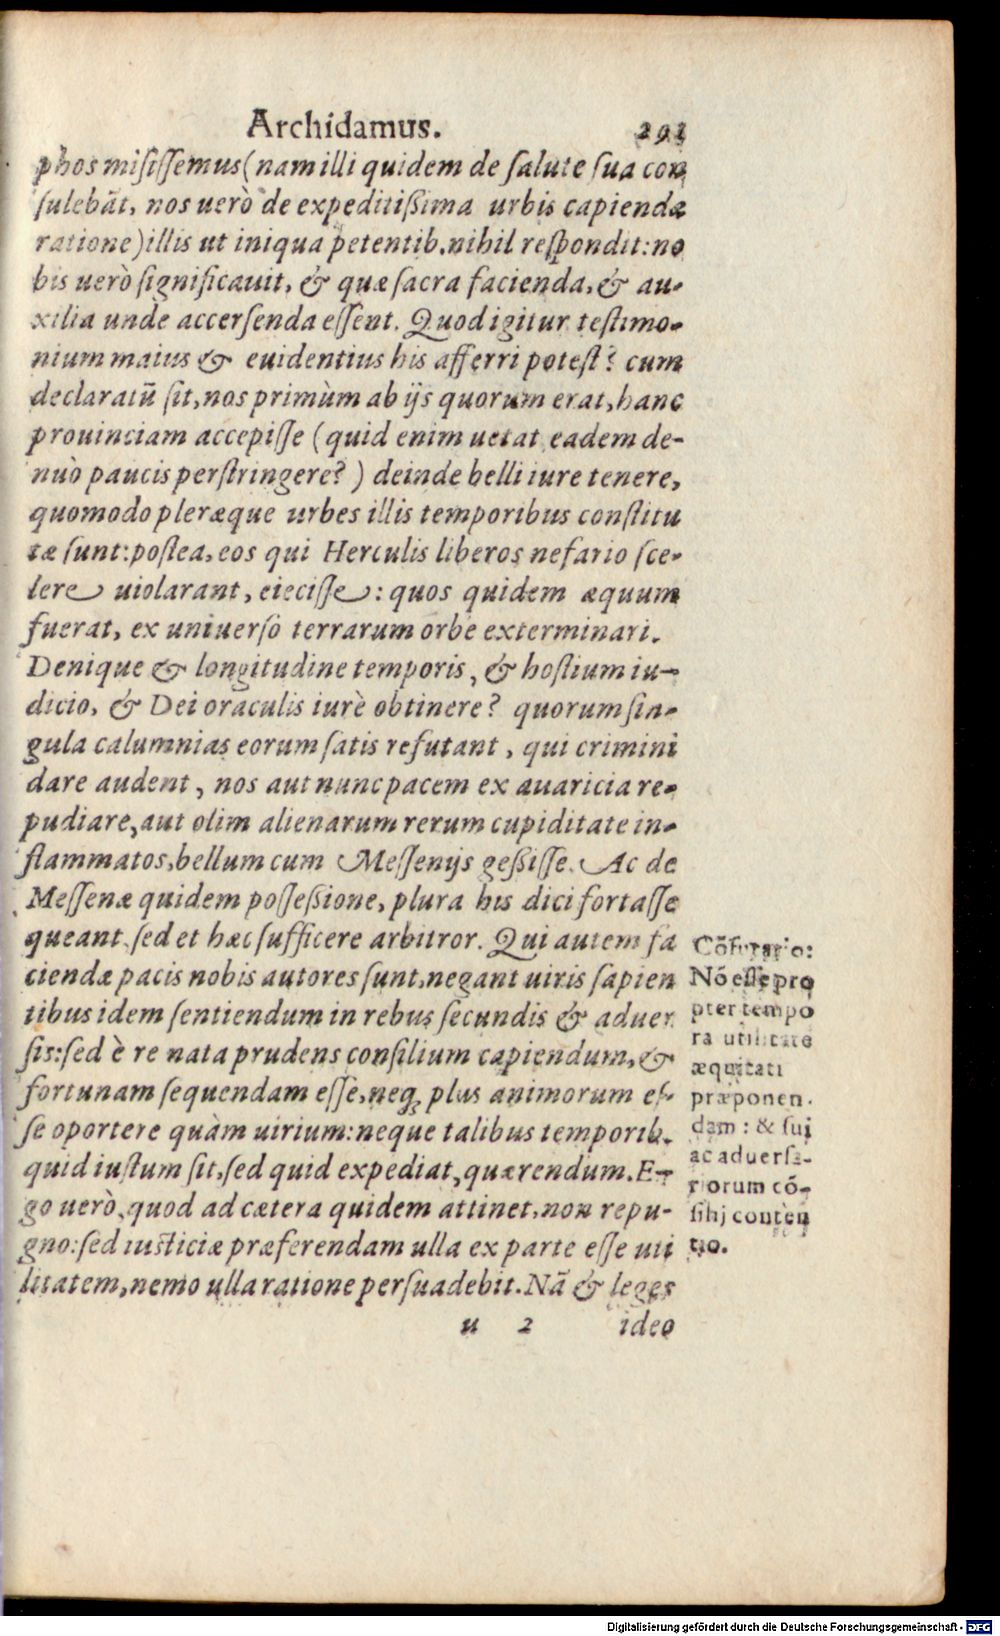 Archidamus. 291
phos misissemus (nam illi quidem de salute sua con
sulebāt, nos uerò de expeditißima urbis capiendæ
ratione) illis ut iniqua petentib. nihil respondit: no
bis uerò significauit, & quæ sacra facienda, & au-
xilia unde accersenda essent. Quod igitur testimo-
nium maius & euidentius his afferri potest? cum
declaratū sit, nos primùm ab ijs quorum erat, hanc
prouinciam accepisse (quid enim uetat eadem de-
nuò paucis perstringere?) deinde belli iure tenere,
quomodo pleræque urbes illis temporibus constitu
tæ sunt: postea, eos qui Herculis liberos nefario sce-
lere uiolarant, eiecisse: quos quidem æquum
fuerat, ex uniuerso terrarum orbe exterminari.
Denique & longitudine temporis, & hostium iu-
dicio, & Dei oraculis iurè obtinere? quorum sin-
gula calumnias eorum satis refutant, qui crimini
dare audent, nos aut nunc pacem ex auaricia re-
pudiare, aut olim alienarum rerum cupiditate in-
flammatos, bellum cum Messenijs geßisse. Ac de
Messenæ quidem possessione, plura his dici fortasse
queant. sed et hæc sufficere arbitror. Qui autem fa
ciendæ pacis nobis autores sunt, negant uiris sapien
tibus idem sentiendum in rebus secundis & aduer
sis: sed è re nata prudens consilium capiendum, &
fortunam sequendam esse, neq; plus animorum es-
se oportere quàm uirium: neque talibus temporib.
quid iustum sit, sed quid expediat, quærendum. E-
go uerò, quod ad cætera quidem attinet, non repu-
gno: sed iusticiæ præferendam ulla ex parte esse uti
litatem, nemo ulla ratione persuadebit. Nā & leges
u 2 ideo
Cōfutatio:
Nō esse pro
pter tempo
ra utilitate
æquitati
præponen.
dam: & sui
ac aduersa-
riorum cō-
silij conten
tio.
Digitalisierung gefördert durch die Deutsche Forschungsgemeinschaft - DFG